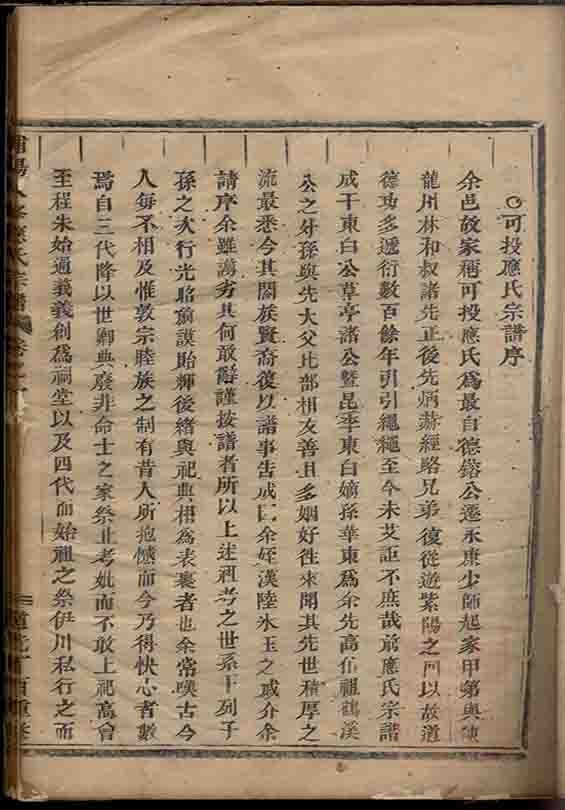 可投應氏宗譜序
余邑故家稱可投應氏為最自德鎔公遷永康少師起家甲第與陳
龍川林和叔諸先正後先炳赫經略兄弟復從遊紫陽之門以故道
德功多遞衍數百餘年引引繩繩至今未艾詎不庶哉前應氏宗譜
成于東白公草亭諸公暨昆季東白嫡孫華東為余先高伯祖鶴溪
公之外孫與先大父比部相友善且多姻好徃來聞其先世積厚之
流最悉今其闔族賢裔復以譜事告成 余姪漢陸氷玉之戚介余
請序余雖譾劣其何敢辭謹按譜者所以上述祖考之世系下列子
孫之次行光昭前謨貽輝後緒與祀典相為表裏者也余常嘆古今
人每不相及惟敦宗睦族之制有昔人所抱憾而今乃得快心者數
焉自三代降以世鄉典廢非命士之家祭止考妣而不敢上祀高曾
至程朱始過義義創為祠堂以及四代而始祖之祭伊川私行之而